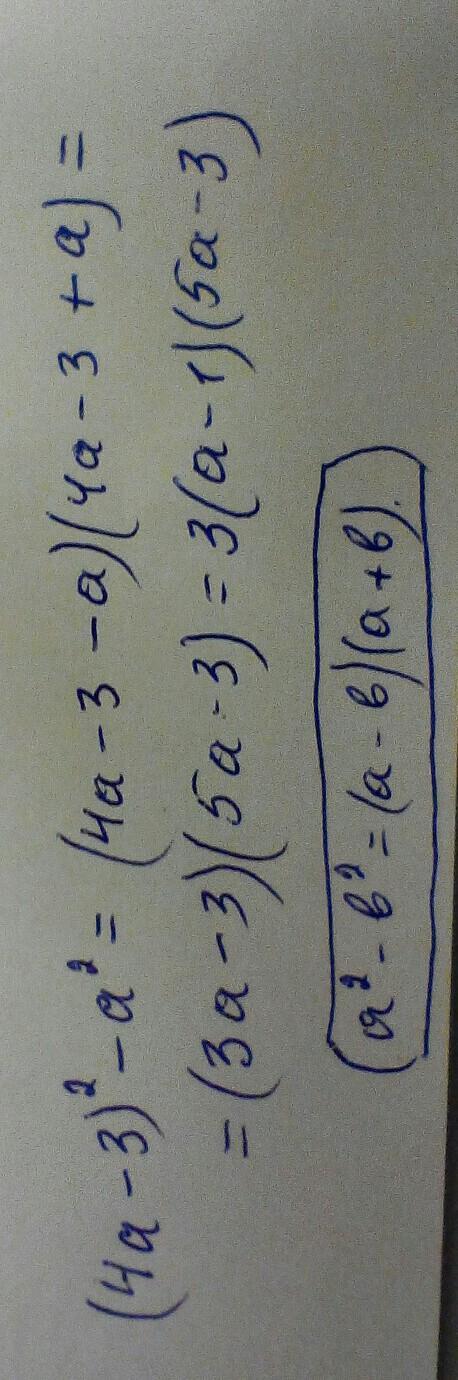 (4a-3)²-a²=(4a-3-a)(4a-3+a)=
=(3a-3)(5a-3)=3(a-1)(5a-3)
(a²-b²=(a-b)(a+b).